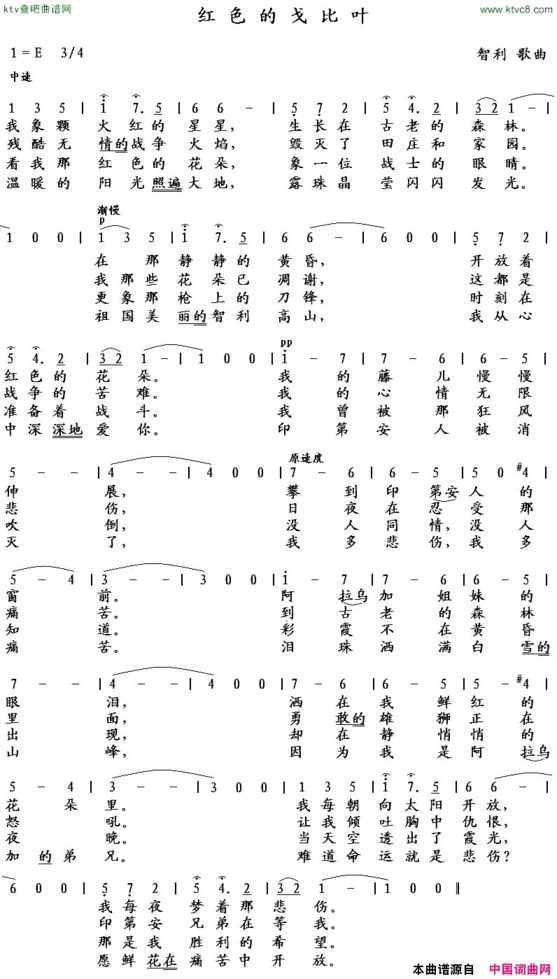 ktv查吧曲谱网
www.ktvc8.com
红色的戈比叶
1=E 3/4
智利 歌曲
中速
1 3 5 | 1 7. 5 | 6 6 - | 5 7 2 | 5 4. 2 | 3 2 1 - |
我象颗 火红的 星星， 生长在 古老的 森林。
残酷无 情的战争 火焰， 毁灭了 田庄和 家园。
看我那 红色的 花朵， 象一位 战士的 眼睛。
温暖的 阳光照遍大地， 露珠晶 莹闪闪 发光。
渐慢
p
1 0 0 | 1 3 5 | 1 7. 5 | 6 6 - | 6 0 0 | 5 7 2 |
在 那静静的 黄昏， 开放着
我那些花朵已 凋谢， 这都是
更象那枪上的 刀锋， 时刻在
祖国美丽的智利 高山， 我从心
pp
5 4. 2 | 3 2 1 - | 1 0 0 | i - 7 | 7 - 6 | 6 - 5 |
红色的 花朵。 我的藤儿慢慢
战争的 苦难。 我的心情无限
准备着 战斗。 我曾被那狂风
中深深地爱你。 印第安人被消
原速度
5 - - | 4 - - | 4 0 0 | 7 - 6 | 6 - 5 | 5 0 #4 |
伸 展， 攀到印第安人的
悲 伤， 日夜在忍受那
吹 倒， 没人同情，没人
灭 了， 我多悲伤，我多
5 - 4 | 3 - - | 3 0 0 | i - 7 | 7 - 6 | 6 - 5 |
窗 前。 阿拉乌加姐妹的
痛 苦。 到古老的森林
知 道。 彩霞不在黄昏
痛 苦。 泪珠洒满白雪的
7 - - | 4 - - | 4 0 0 | 7 - 6 | 6 - 5 | 5 - #4 |
眼 泪， 洒在我鲜红的
里 面， 勇敢的雄狮正在
出 现， 却在静悄悄的
山 峰， 因为我是阿拉乌
5 - 4 | 3 - - | 3 0 0 | 1 3 5 | 1 7. 5 | 6 6 - |
花朵里。 我每朝向太阳开放，
怒 吼。 让我倾吐胸中仇恨，
夜 晚。 当天空透出了霞光，
加的弟兄。 难道命运就是悲伤？
6 0 0 | 5 7 2 | 5 4. 2 | 3 2 1 - | 1 0 0 ‖
我每夜 梦着那悲伤。
印第安 兄弟在等我。
那是我 胜利的希望。
愿鲜花在痛苦中开放。
本曲谱源自 中国词曲网